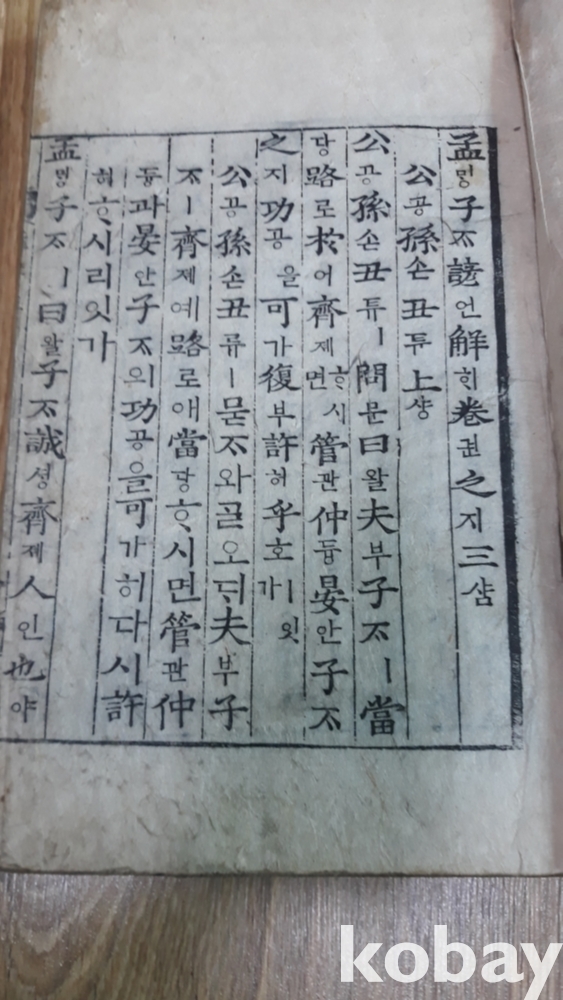 孟ᄆᆡᆼ子ᄌᆞ諺언解ᄒᆡ卷권之지三삼
公공孫손丑튜上샹
公공孫손丑튜ㅣ問문曰왈夫부子ᄌᆞㅣ當
당路로於어齊제ᄒᆞ시면管관仲듕晏안子ᄌᆞ
之지功공을可가復부許허乎호ㅣ잇가
公공孫손丑튜ㅣ묻ᄌᆞ와ᄀᆞᆯ오ᄃᆡ夫부子
ᄌᆞㅣ齊제예路로애當당ᄒᆞ시면管관仲
듕과晏안子ᄌᆞ의功공을可가히다시許
허ᄒᆞ시리잇가
孟ᄆᆡᆼ子ᄌᆞㅣ曰왈子ᄌᆞ誠셩齊제人인也야
kobay